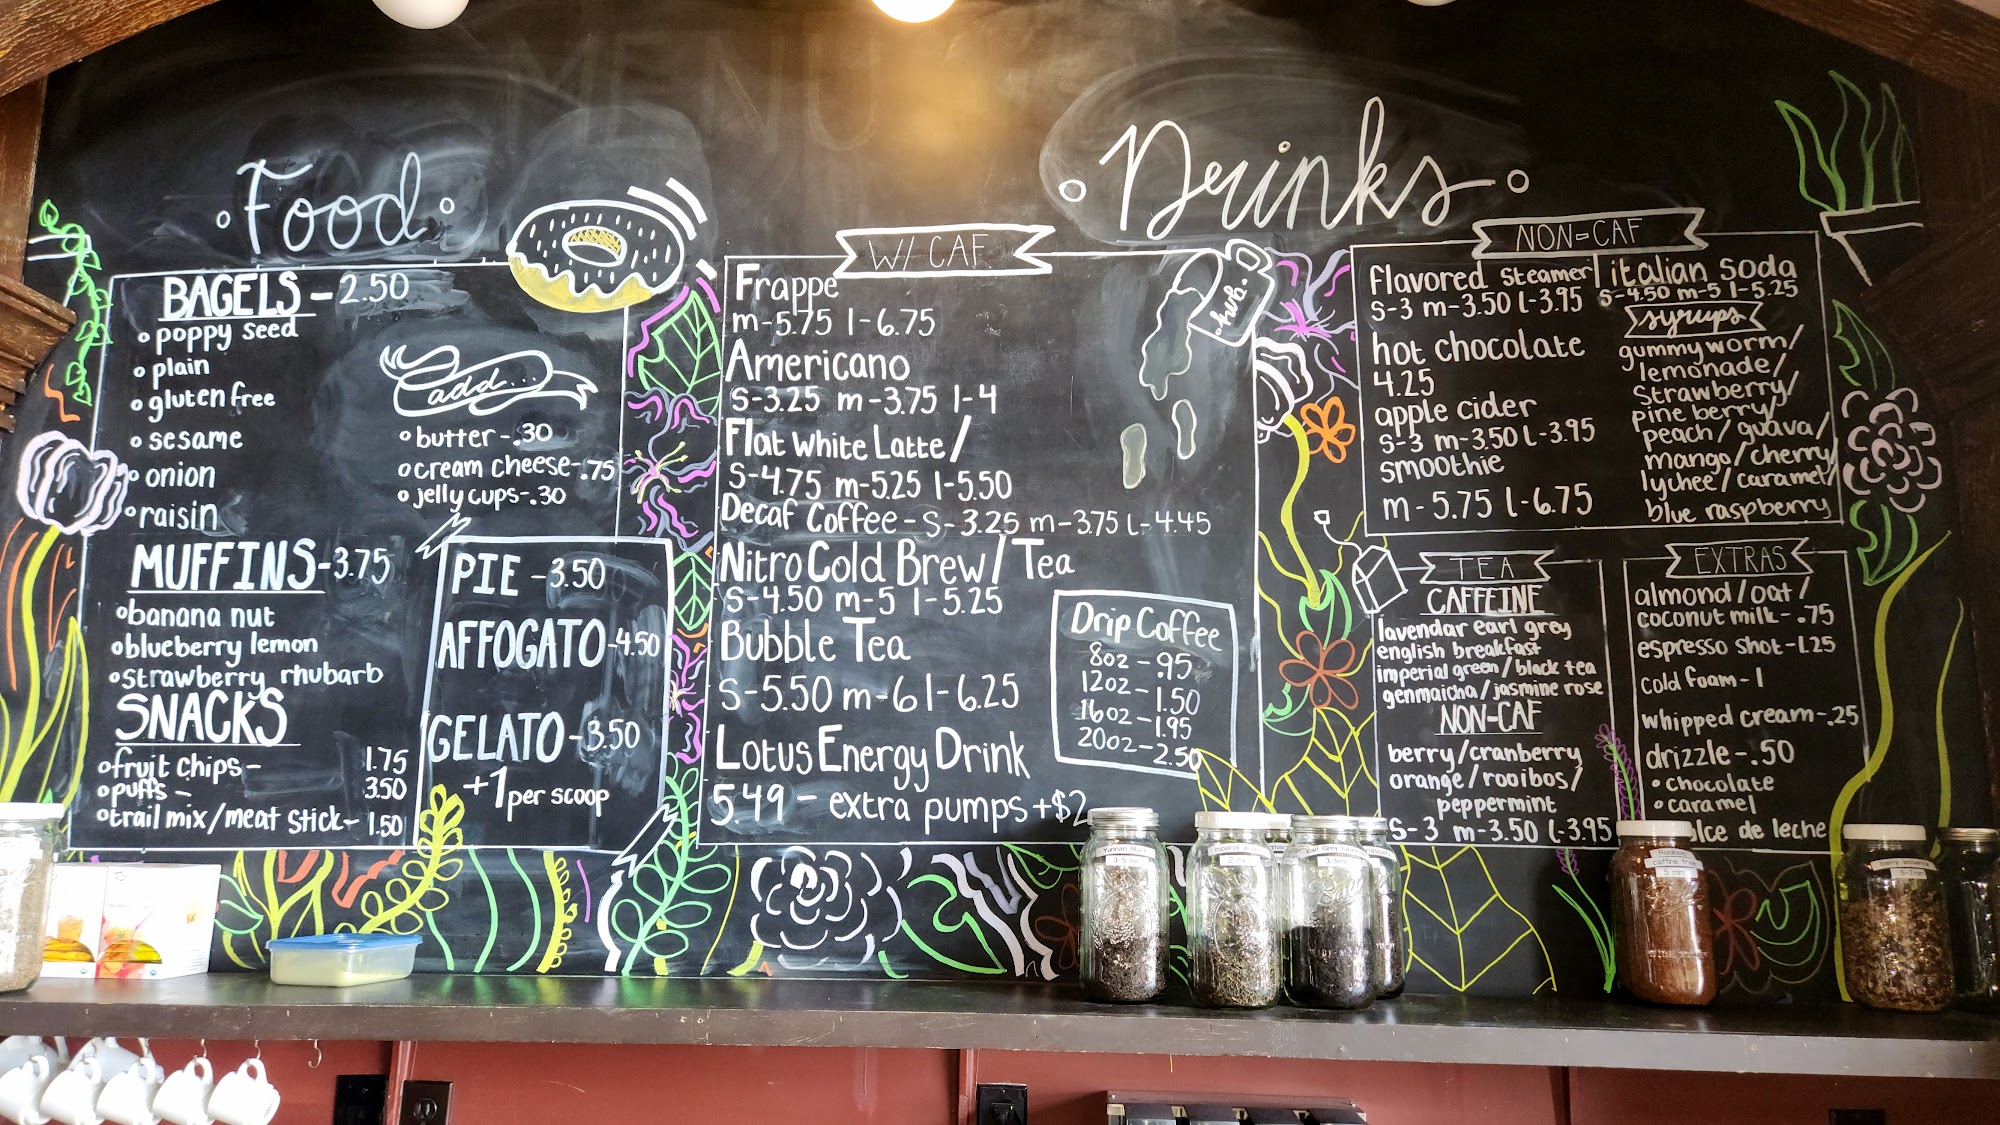 MENU
Food
BAGELS - 2.50
poppy seed
plain
gluten free
sesame
onion
raisin
add...
butter - .30
cream cheese - .75
jelly cups - .30
MUFFINS - 3.75
banana nut
blueberry lemon
strawberry rhubarb
SNACKS
fruit chips - 1.75
puffs - 3.50
trail mix/meat stick - 1.50
PIE - 3.50
AFFOGATO - 4.50
GELATO - 3.50
+1 per scoop
Drinks
W/ CAF.
hub.
Frappe
m - 5.75 l - 6.75
Americano
S - 3.25 m - 3.75 l - 4
Flat White Latte/
S - 4.75 m - 5.25 l - 5.50
Decaf Coffee - S - 3.25 m - 3.75 L - 4.45
Nitro Cold Brew/Tea
S - 4.50 m - 5 l - 5.25
Bubble Tea
S - 5.50 m - 6 l - 6.25
Lotus Energy Drink
5.49 - extra pumps +$2
Drip Coffee
8oz - .95
12oz - 1.50
16oz - 1.95
20oz - 2.50
NON-CAF
flavored steamer
S - 3 m - 3.50 l - 3.95
hot chocolate
4.25
apple cider
S - 3 m - 3.50 L - 3.95
smoothie
m - 5.75 l - 6.75
italian soda
S - 4.50 m - 5 l - 5.25
syrups
gummy worm/
lemonade/
strawberry/
pine berry/
peach/guava/
mango/cherry/
lychee/caramel/
blue raspberry
TEA
CAFFEINE
lavendar earl grey
english breakfast
imperial green/black tea
genmaicha/jasmine rose
NON-CAF
berry/cranberry
orange/rooibos/
peppermint
S - 3 m - 3.50 L - 3.95
EXTRAS
almond/oat/
coconut milk - .75
espresso shot - 1.25
cold foam - 1
whipped cream - .25
drizzle - .50
chocolate
caramel
dulce de leche
Yunnan
3-5 min
Earl Grey
Rooibos
caffine free
5 min
berry essence
5-7min